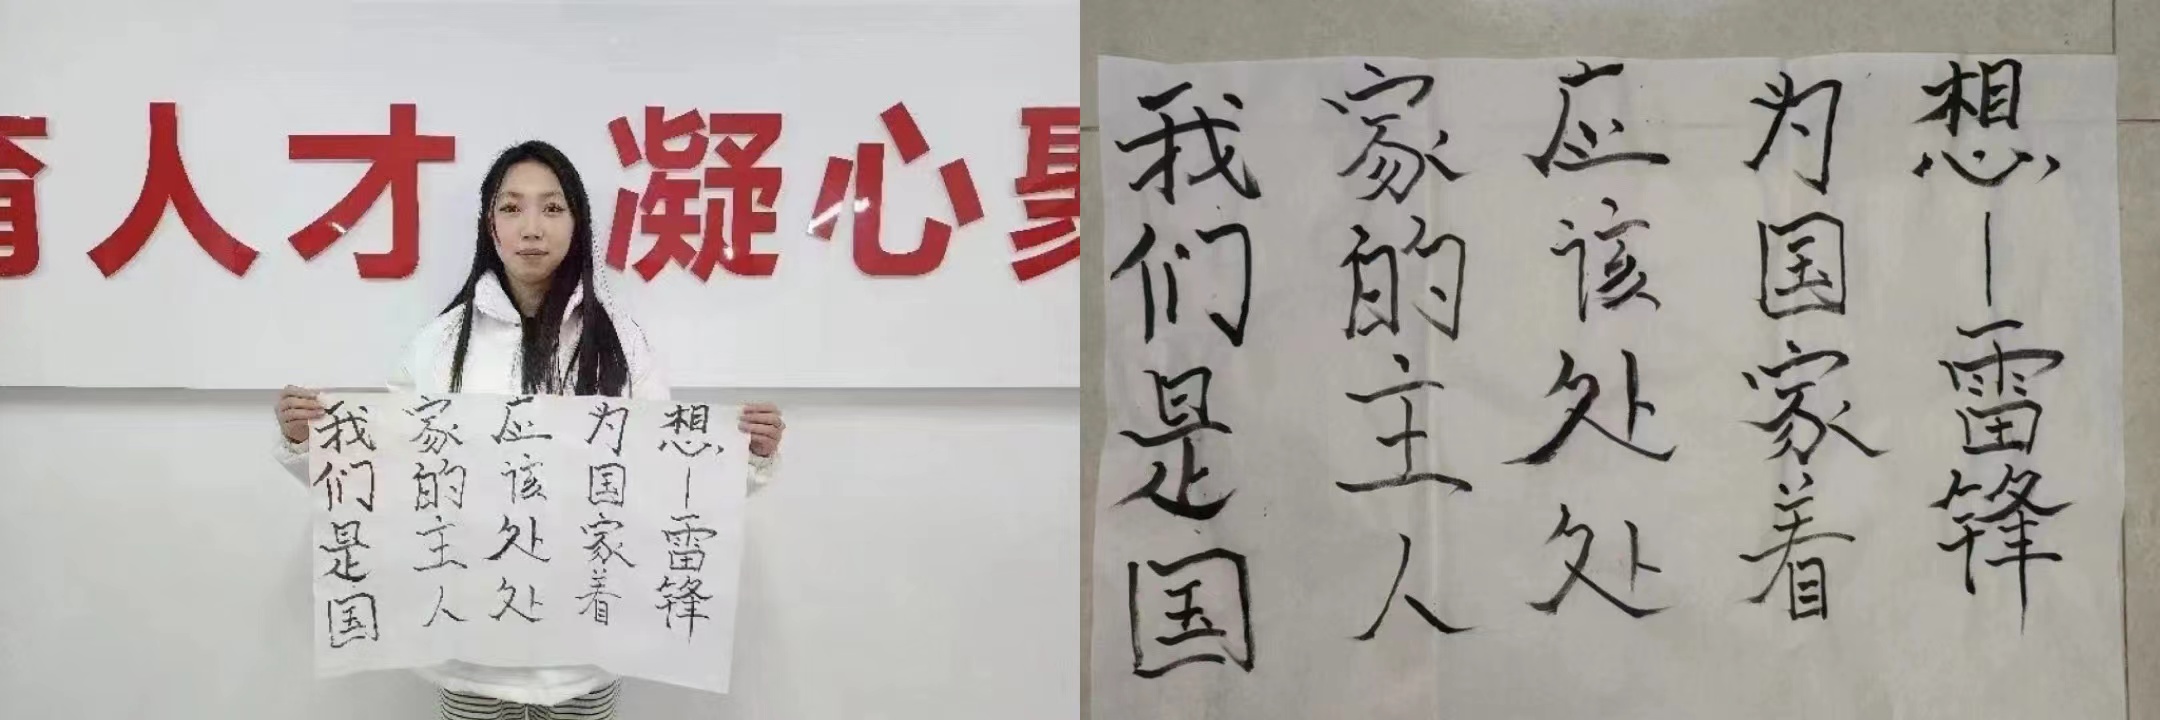 育人才 凝心聚
我们是国
家的主人
应该处处
为国家着
想—雷锋
我们是国
家的主人
应该处处
为国家着
想—雷锋